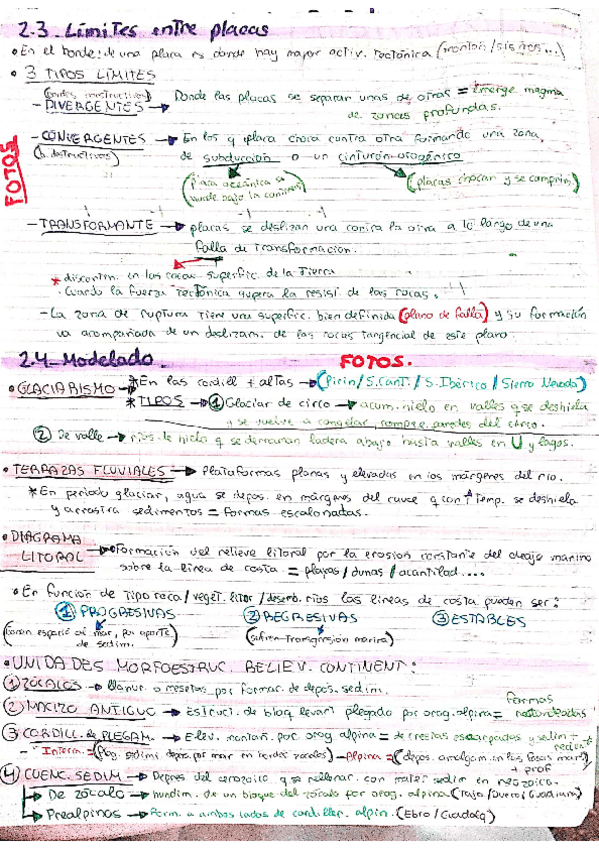 2.3 Límites entre placas
• En el borde de una placa es donde hay mayor activ. tectónica (montañ/sismos...)
• 3 TIPOS LÍMITES
(bordes constructivos)
- DIVERGENTES → Donde las placas se separan unas de otras = emerge magma
de zonas profundas.
- CONVERGENTES → En los q 1 placa choca contra otra formando una zona
(b. destructivos) de subducción o un cinturón orogénico
FOTOS
(Placa oceánica se hunde bajo la continen) (placas chocan y se comprim)
- TRANSFORMANTE → placas se deslizan una contra la otra a lo largo de una
falla de transformación.
* discontin. en las rocas superfic. de la Tierra
· Cuando la fuerza tectónica supera la resist. de las rocas.
- La zona de ruptura tiene una superfic. bien definida (plano de falla) y su formación
va acompañada de un deslizam. de las rocas tangencial de este plano.
2.4 Modelado. FOTOS.
• GLACIARISMO → * En las cordill + altas → (Pirin/S.Cant./S.Ibérico/Sierra Nevada)
* TIPOS → ① Glaciar de circo → acum. hielo en valles q se deshiela
y se vuelve a congelar, rompe paredes del circo.
② De valle → ríos de hielo q se derraman ladera abajo hasta valles en U y lagos.
• TERRAZAS FLUVIALES → Plataformas planas y elevadas en los márgenes del río.
* En periodo glaciar, agua se depos. en márgenes del cauce q con ↑ temp. se deshiela
y arrastra sedimentos = formas escalonadas.
• DIAGRAMA
LITORAL → Formación del relieve litoral por la erosión constante del oleaje marino
sobre la línea de costa = playas/dunas/acantilad....
• En función de tipo roca/veget. litor/desemb. ríos las líneas de costa pueden ser:
① PROGRESIVAS ② REGRESIVAS ③ ESTABLES
(Ganan espacio al mar, por aporte de sedim.) (sufren transgresión marina)
• UNIDADES MORFOESTRUC. RELIEV. CONTINENT:
① ZÓCALOS → llanur. o mesetas por formar. de depos. sedim.
② MACIZO ANTIGUO → Estruct. de bloq levant plegado por orog. alpina = formas redondeadas
③ CORDILL. de PLEGAM. → Elev. montañ. por orog alpina = de crestas escarpadas y sedim + recient
- Interm. = (Pleg. sedim depos. por mar en bordes zócalos) - Alpina = (depos. amalgam. en las fosas mar + prof)
④ CUENC. SEDIM → Depres del cenozoico q se rellenar. con mater sedim en neozoico.
→ De zócalo → hundim. de un bloque del zócalo por orog. alpina (Tajo/Duero/Guadiana)
→ Prealpinas → Form. a ambos lados de cordiller. alpin. (Ebro/Guadalq)